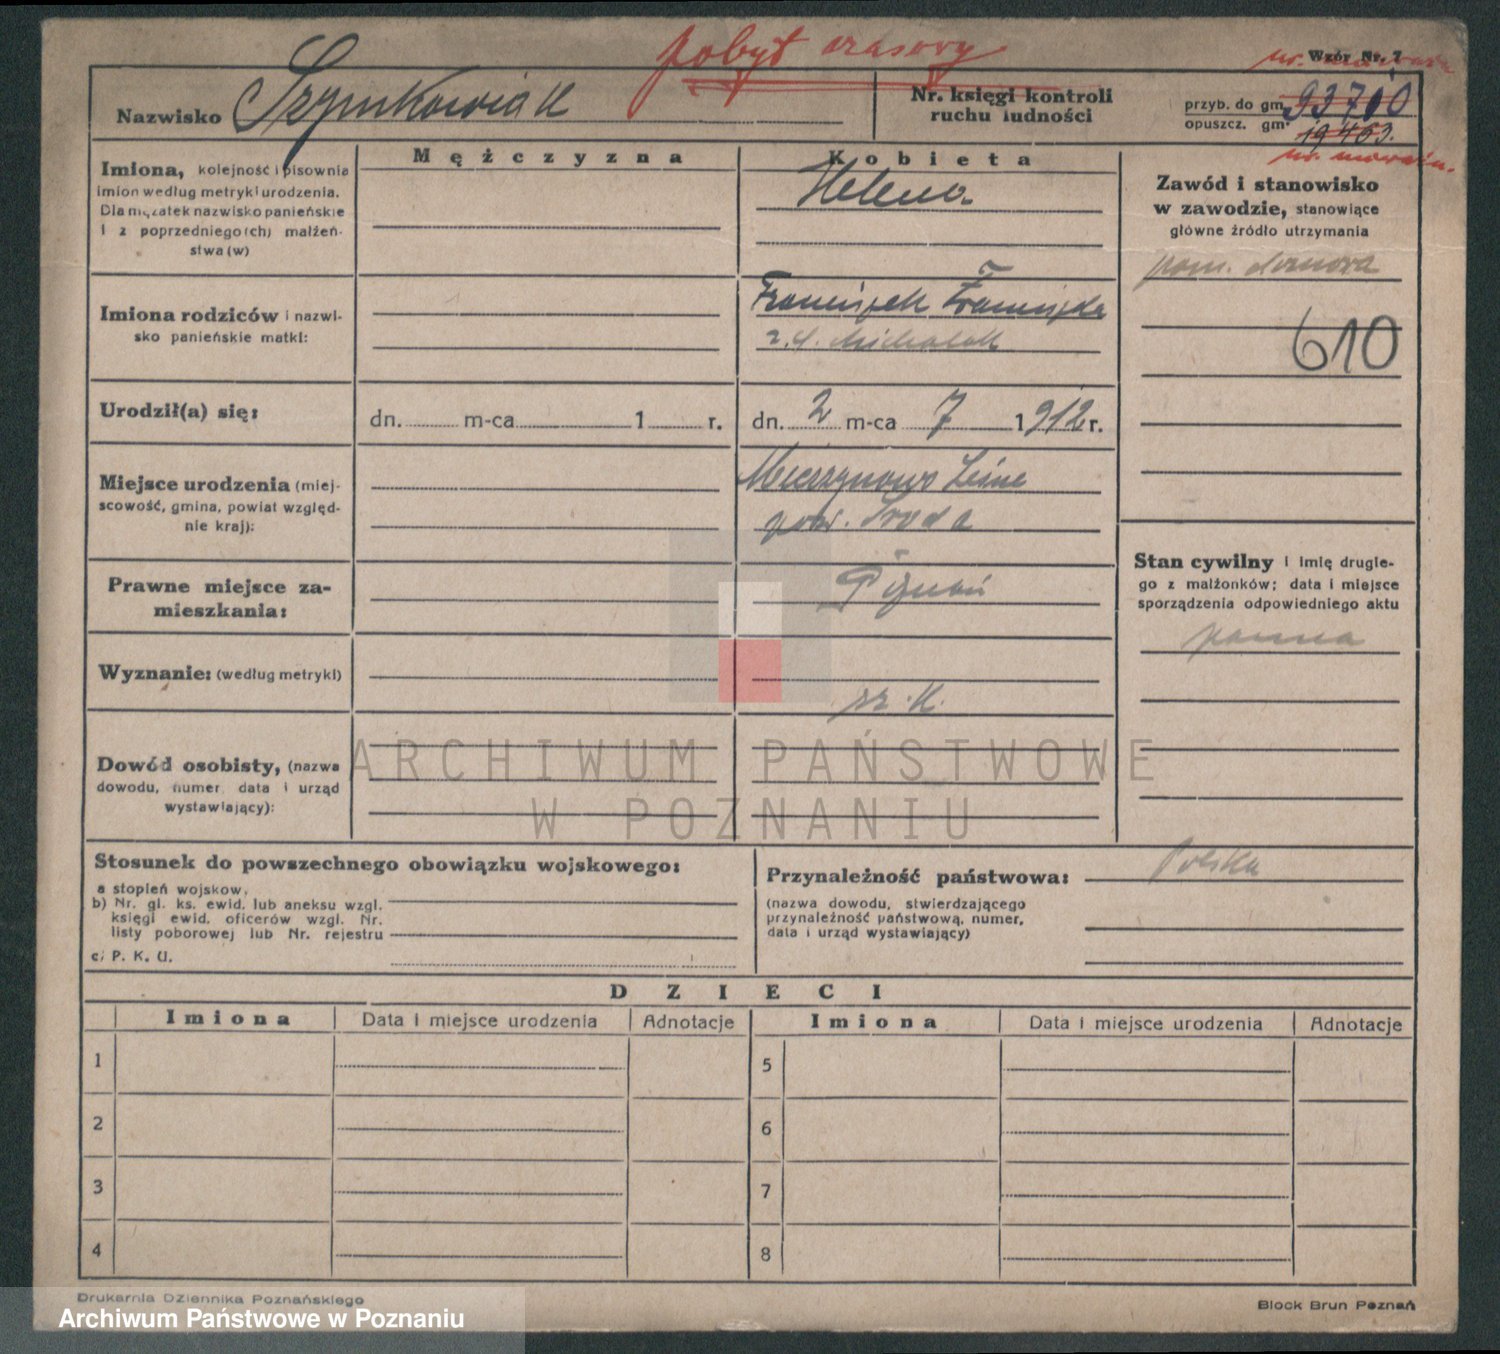 pobyt czasowy
Wzór Nr. 7
Nazwisko Szymkowiak
Nr. księgi kontroli
ruchu ludności
przyb. do gm. 93700
opuszcz. gm. 19463.
Mężczyzna
Kobieta
Imiona, kolejność i pisownia
imion według metryki urodzenia.
Dla mężatek nazwisko panieńskie
i z poprzedniego(ch) małżeń-
stwa(w)
Helena
Zawód i stanowisko
w zawodzie, stanowiące
główne źródło utrzymania
pom. domowa
610
Imiona rodziców i nazwi-
sko panieńskie matki:
Franciszek Franciszka
z d. Michalak
Urodził(a) się:
dn. m-ca 1 r.
dn. 2 m-ca 7 1912 r.
Miejsce urodzenia (miej-
scowość, gmina, powiat względ-
nie kraj):
pow. Środa
Stan cywilny i imię drugie-
go z małżonków; data i miejsce
sporządzenia odpowiedniego aktu
panna
Prawne miejsce za-
mieszkania:
Poznań
Wyznanie: (według metryki)
rz. k.
Dowód osobisty, (nazwa
dowodu, numer data i urząd
wystawiający):
ARCHIWUM PAŃSTWOWE
W POZNANIU
Stosunek do powszechnego obowiązku wojskowego:
a stopień wojskow.
b) Nr. gl. ks. ewid. lub aneksu wzgl.
księgi ewid. oficerów wzgl. Nr.
listy poborowej lub Nr. rejestru
c) P. K. U.
Przynależność państwowa: Polska
(nazwa dowodu, stwierdzającego
przynależność państwową, numer,
data i urząd wystawiający)
DZIECI
Imiona Data i miejsce urodzenia Adnotacje Imiona Data i miejsce urodzenia Adnotacje
1 5
2 6
3 7
4 8
Drukarnia Dziennika Poznańskiego
Block Brun Poznań
Archiwum Państwowe w Poznaniu